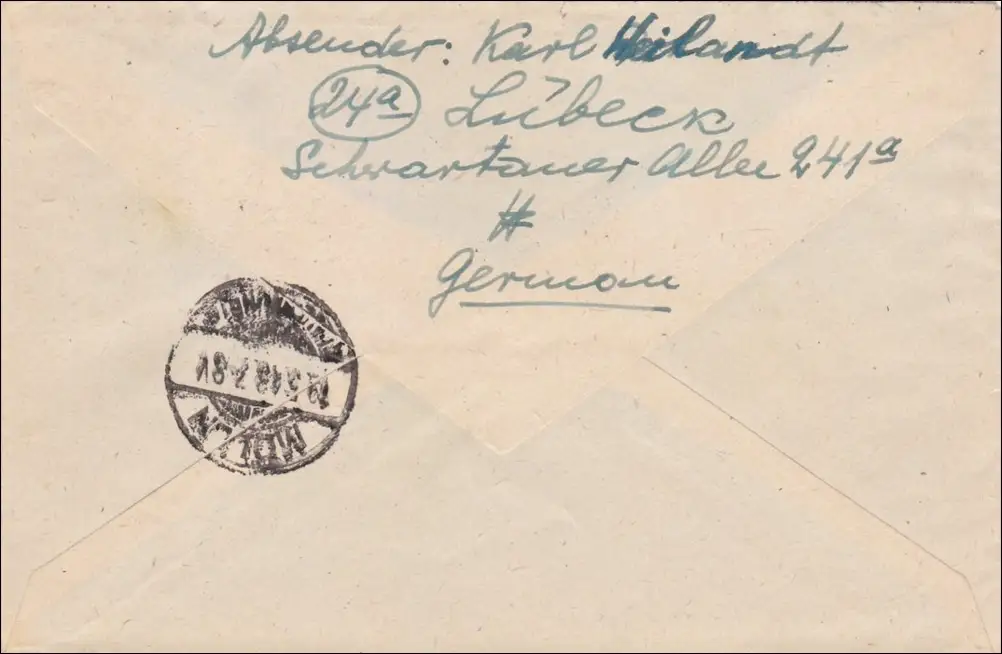 Absender: Karl Heilandt
24a Lübeck
Schwartauer Allee 241a
#
German